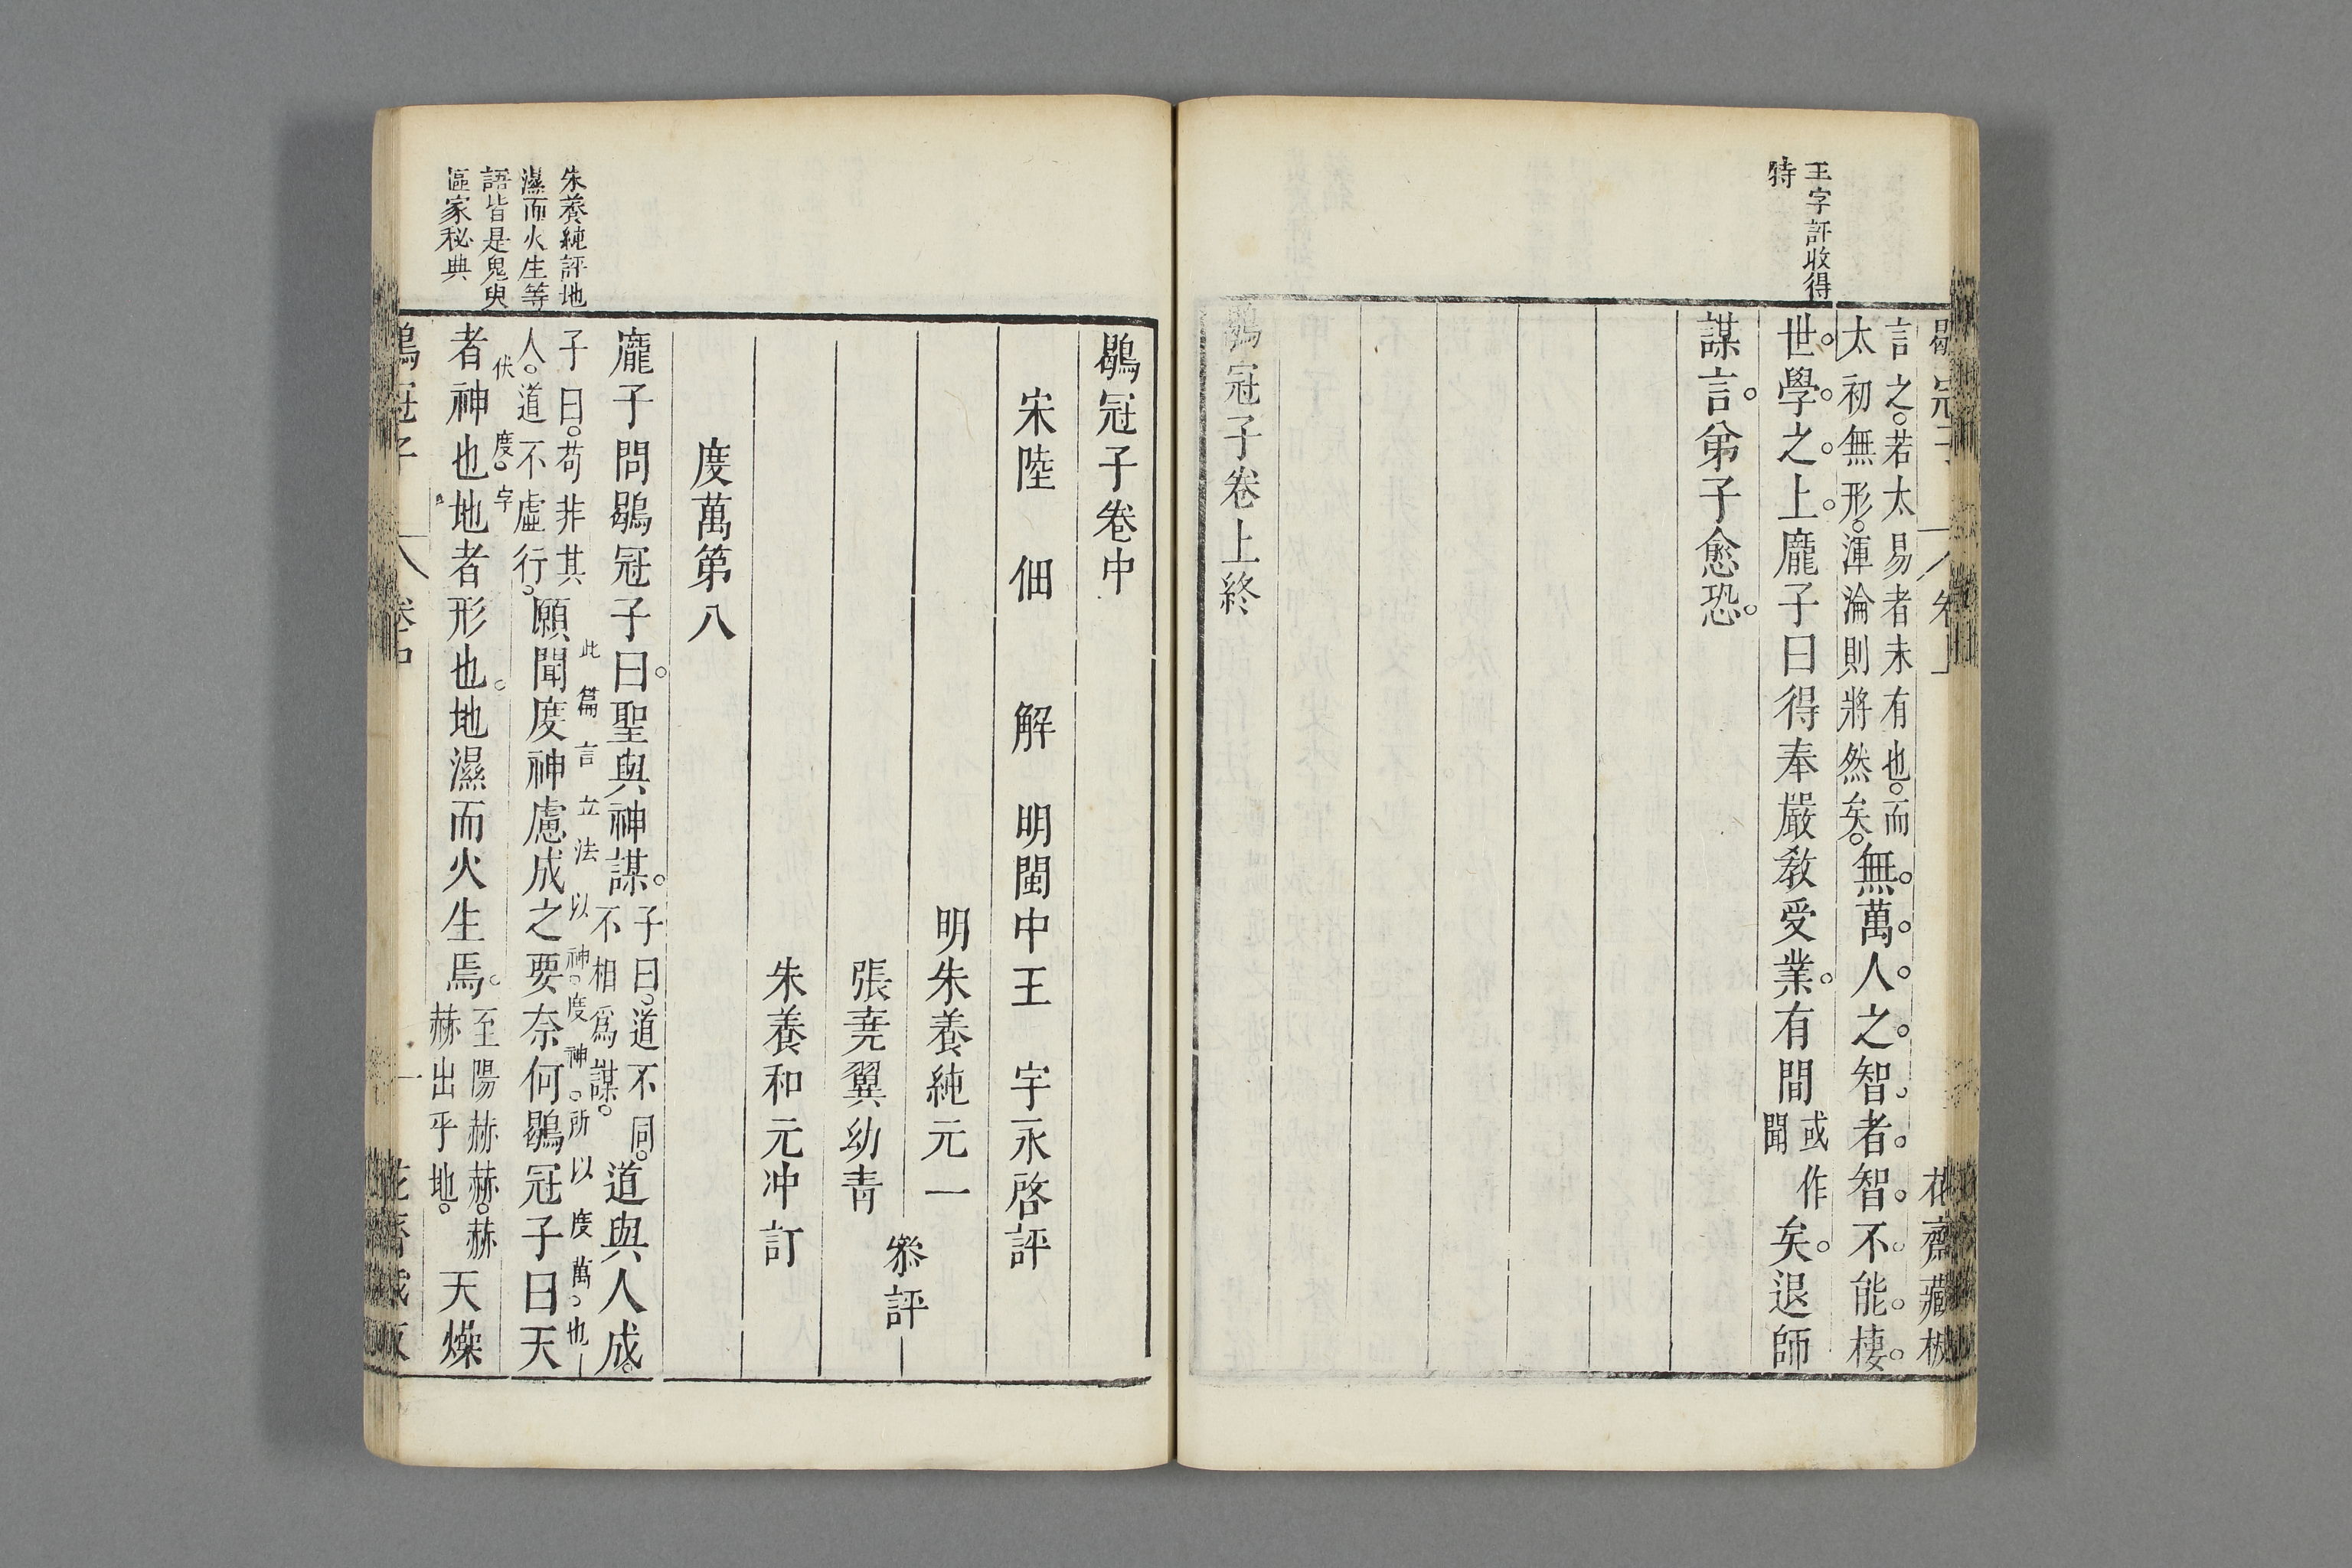 王字評收得
特
言之若太易者未有也而
太初無形渾淪則將然矣無萬人之智者智不能棲
世學之上龐子曰得奉嚴教受業有間或作聞矣退師
謀言弟子愈恐
鶡冠子卷上終
花齋藏板
鶡冠子卷中
宋陸佃解 明閩中王宇永啓評
明朱養純元一
張堯翼幼青
叅評
朱養和元冲訂
度萬第八
龐子問鶡冠子曰聖與神謀子曰道不同不相爲謀道與人成
子曰苟非其人道不虛行願聞度神慮成之要奈何鶡冠子曰天
此篇言立法以神度神所以度萬也
者神也地者形也地濕而火生焉至陽赫赫赫赫出乎地天燥
伏度字
朱養純評地
濕而火生等
語皆是鬼臾
區家秘典
鶡冠子
卷中
一